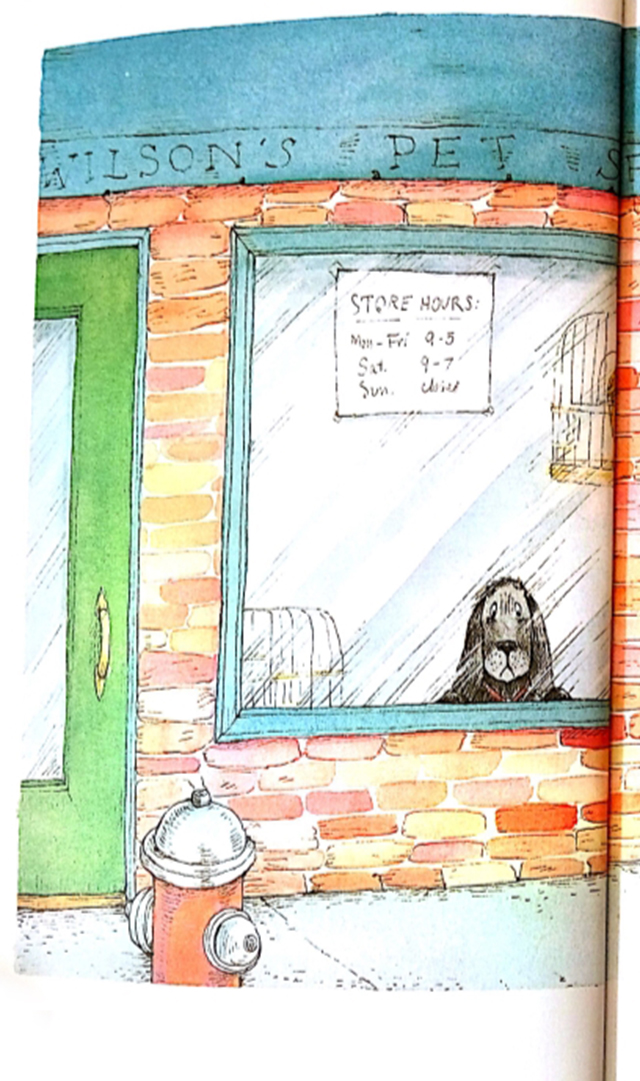 WILSON'S PET S
STORE HOURS:
Mon-Fri 9-5
Sat. 9-7
Sun. closed